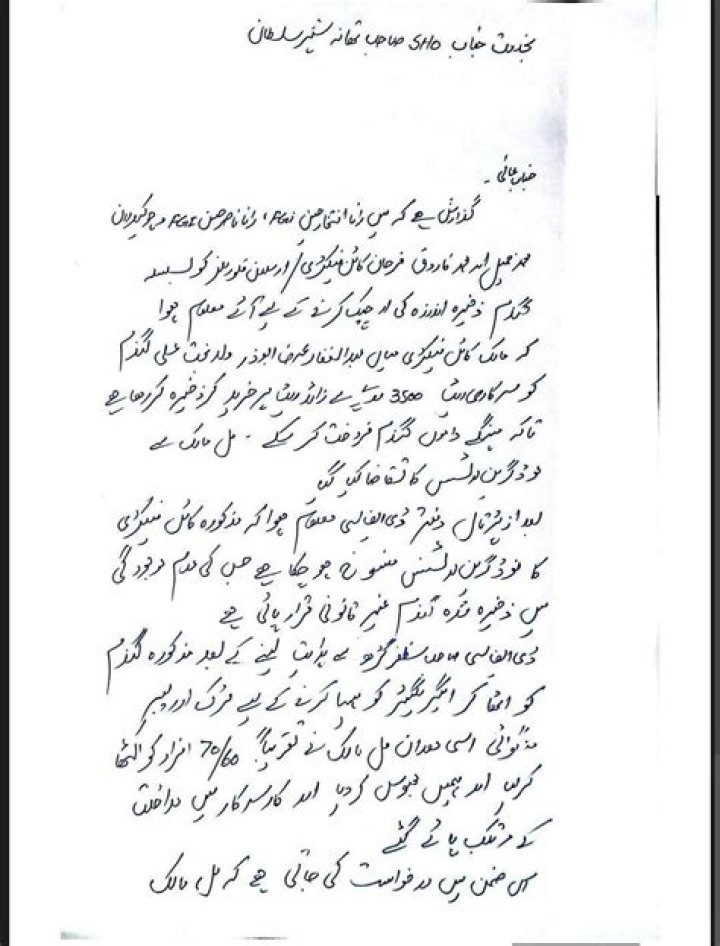 بخدمت جناب SHO صاحب تھانہ شہر سلطان
جناب عالی۔
گذارش ہے کہ میں رانا افتخار حسن FGI، رانا ناصر حسن FGI و چوکیداران
محمد جمیل اور محمد فاروق فرحان کاٹن فیکٹری / فلور ملز کو بسلسلہ
گندم ذخیرہ اندوزی چیک کرنے کے لیے آئے معلوم ہوا
کہ مالک کاٹن فیکٹری میاں عبدالغفار عرف ابوذر ولد علی گندم
کو سرکاری ریٹ 3500 سے زائد ریٹ پر خرید کر ذخیرہ کر رہا ہے
تاکہ مہنگے داموں گندم فروخت کر سکے۔ مل مالک سے
فوڈ گرین لائسنس کا تقاضا کیا گیا
بعد از پڑتال دفتر ڈی ایف سی معلوم ہوا کہ مذکورہ کاٹن فیکٹری
کا فوڈ گرین لائسنس منسوخ ہو چکا ہے جس کی عدم موجودگی
میں ذخیرہ شدہ گندم غیر قانونی قرار پائی ہے
ڈی ایف سی صاحب مظفر گڑھ سے ہدایت لینے کے بعد مذکورہ گندم
کو اٹھا کر ایگریگیٹر کو مہیا کرنے کے لیے ٹرک اور لیبر
منگوائی اسی دوران مل مالک نے تقریباً 70/60 افراد کو اکٹھا
کر لیا اور ہمیں محبوس کر دیا اور کار سرکار میں مداخلت
کے مرتکب پائے گئے
اس ضمن میں درخواست کی جاتی ہے کہ مل مالک